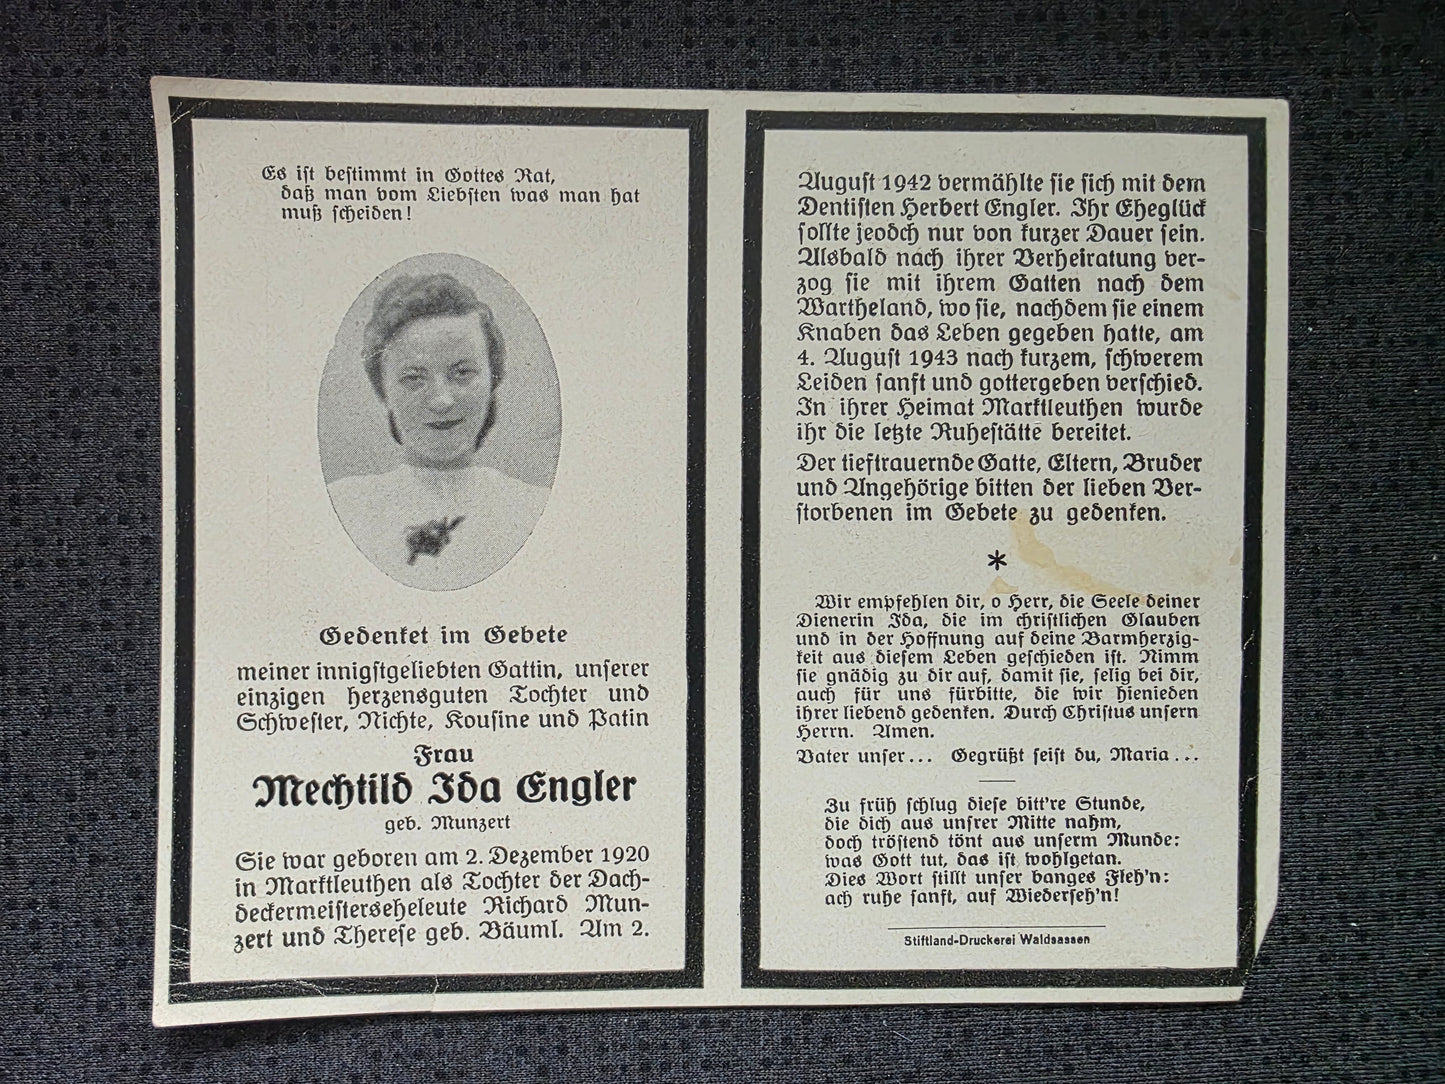 Es ist bestimmt in Gottes Rat,
daß man vom Liebsten was man hat
muß scheiden!
Gedenket im Gebete
meiner innigstgeliebten Gattin, unserer
einzigen herzensguten Tochter und
Schwester, Nichte, Kousine und Patin
Frau
Mechtild Ida Engler
geb. Munzert
Sie war geboren am 2. Dezember 1920
in Marktleuthen als Tochter der Dach-
deckermeisterseheleute Richard Mun-
zert und Therese geb. Bäuml. Am 2.
August 1942 vermählte sie sich mit dem
Dentisten Herbert Engler. Ihr Eheglück
sollte jeodch nur von kurzer Dauer sein.
Alsbald nach ihrer Verheiratung ver-
zog sie mit ihrem Gatten nach dem
Wartheland, wo sie, nachdem sie einem
Knaben das Leben gegeben hatte, am
4. August 1943 nach kurzem, schwerem
Leiden sanft und gottergeben verschied.
In ihrer Heimat Marktleuthen wurde
ihr die letzte Ruhestätte bereitet.
Der tieftrauernde Gatte, Eltern, Bruder
und Angehörige bitten der lieben Ver-
storbenen im Gebete zu gedenken.
*
Wir empfehlen dir, o Herr, die Seele deiner
Dienerin Ida, die im christlichen Glauben
und in der Hoffnung auf deine Barmherzig-
keit aus diesem Leben geschieden ist. Nimm
sie gnädig zu dir auf, damit sie, selig bei dir,
auch für uns fürbitte, die wir hienieden
ihrer liebend gedenken. Durch Christus unsern
Herrn. Amen.
Vater unser... Gegrüßt seist du, Maria...
Zu früh schlug diese bitt're Stunde,
die dich aus unsrer Mitte nahm,
doch tröstend tönt aus unserm Munde:
was Gott tut, das ist wohlgetan.
Dies Wort stillt unser banges Fleh'n:
ach ruhe sanft, auf Wiederseh'n!
Stiftland-Druckerei Waldsassen